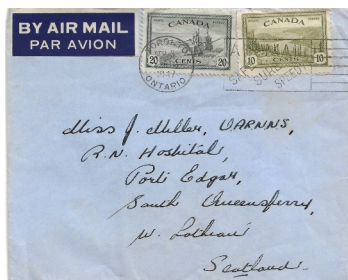 BY AIR MAIL
PAR AVION
CANADA
20 CENTS 20
CANADA
10 CENTS 10
TORONTO
1947
ONTARIO
SPEEDY
Miss J. Miller, VARNNS,
R.N. Hospital,
Port Edgar,
South Queensferry,
W. Lothian
Scotland.